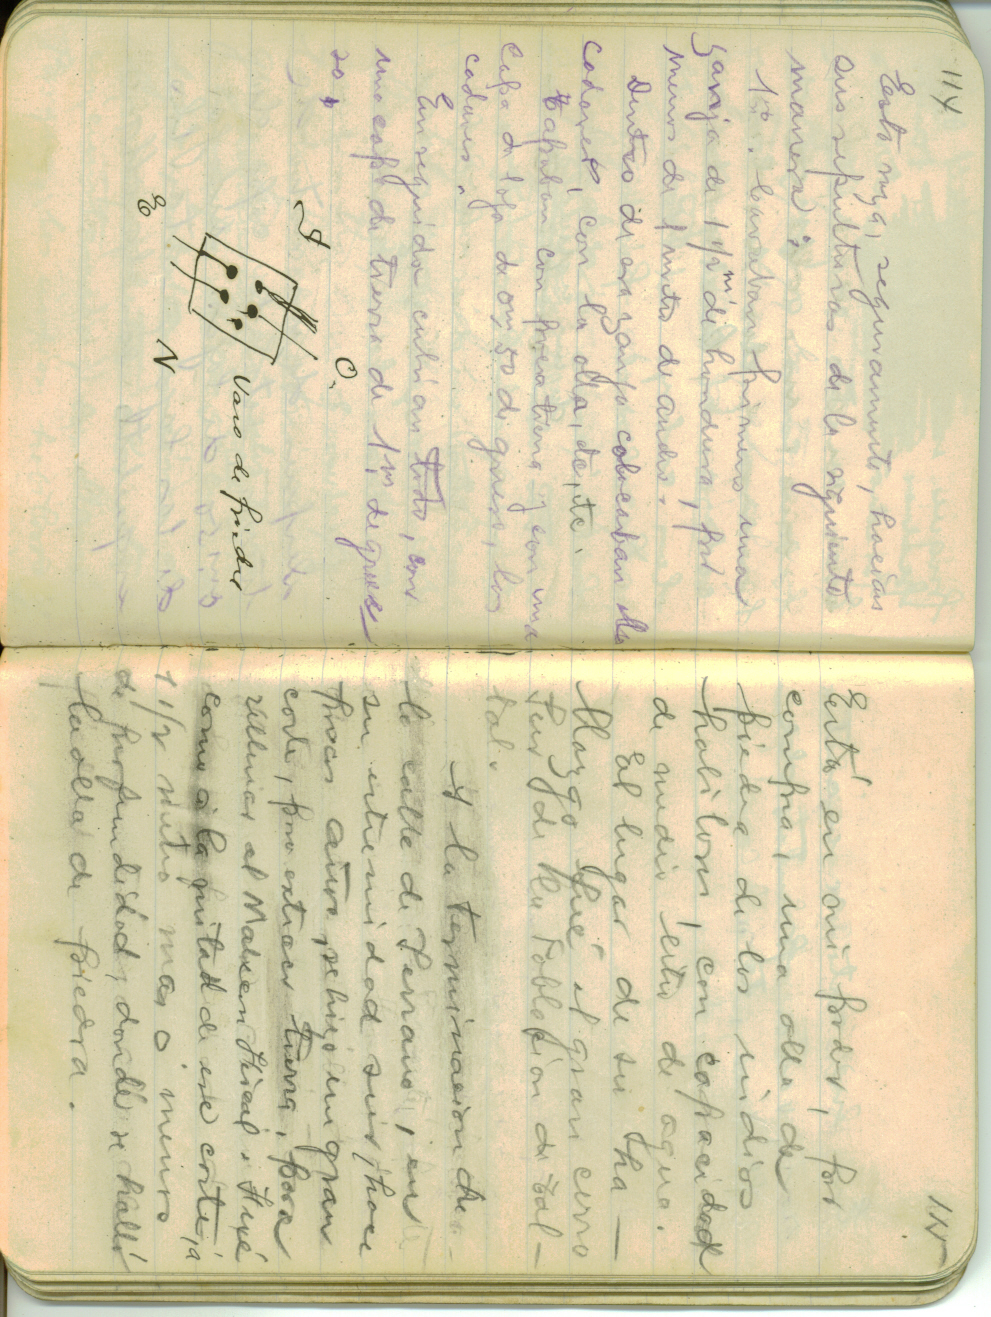 114
Esto nza, seguramente, hacian
sus sepulturas de la siguiente
manera:
1º. Cavaban primero una
zanja de 1 1/2 m. de hondura, por
menos de 1 metro de ancho.
Dentro de esa zanja colocaban
cadaver, con la olla, etc.
Tapaban con tierra y con una
capa de 0m,50 de grueso, los
cadaveres.
En seguida cubrian todo, con
una capa de tierra de 1 m de grueso
20,
S
O.
E
N
Vaso de piedra
115
Está en mi poder, por
compra, una olla de
piedra de los indios
habiloros, con capacidad
de medio litro de agua.
El lugar de su ha-
llazgo fué el gran cerro
de la Poblacion de Tal-
tal.
A la terminacion de
la calle de Serrano, en
su intermidad sur, hace
pocos años, se hizo un gran
corte, para extraer tierra, para
rellenar el Malecon Fiscal. Fué
como á la mitad de ese corte, á
1 1/2 metro mas o menos
de profundidad, donde se halló
la olla de piedra.